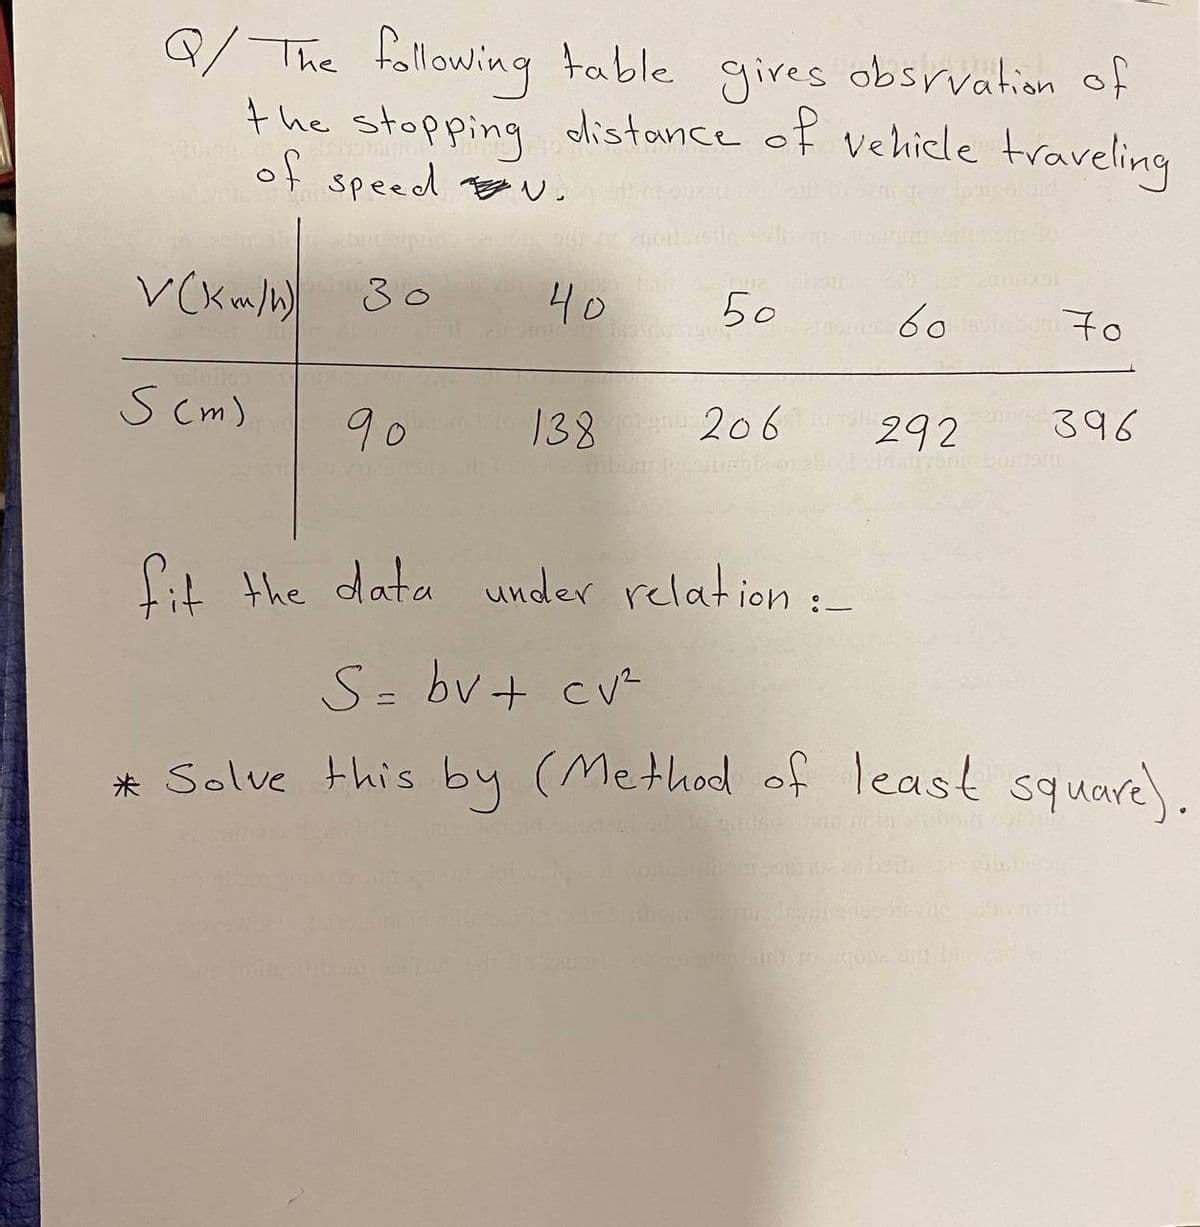 Q/ The following table gives obsrvation of
the stopping distance of vehicle traveling
of speed v.
V(Km/h) 30 40 50 60 70
S(m) 90 138 206 292 396
fit the data under relation :-
S = bv + cv²
* Solve this by (Method of least square).